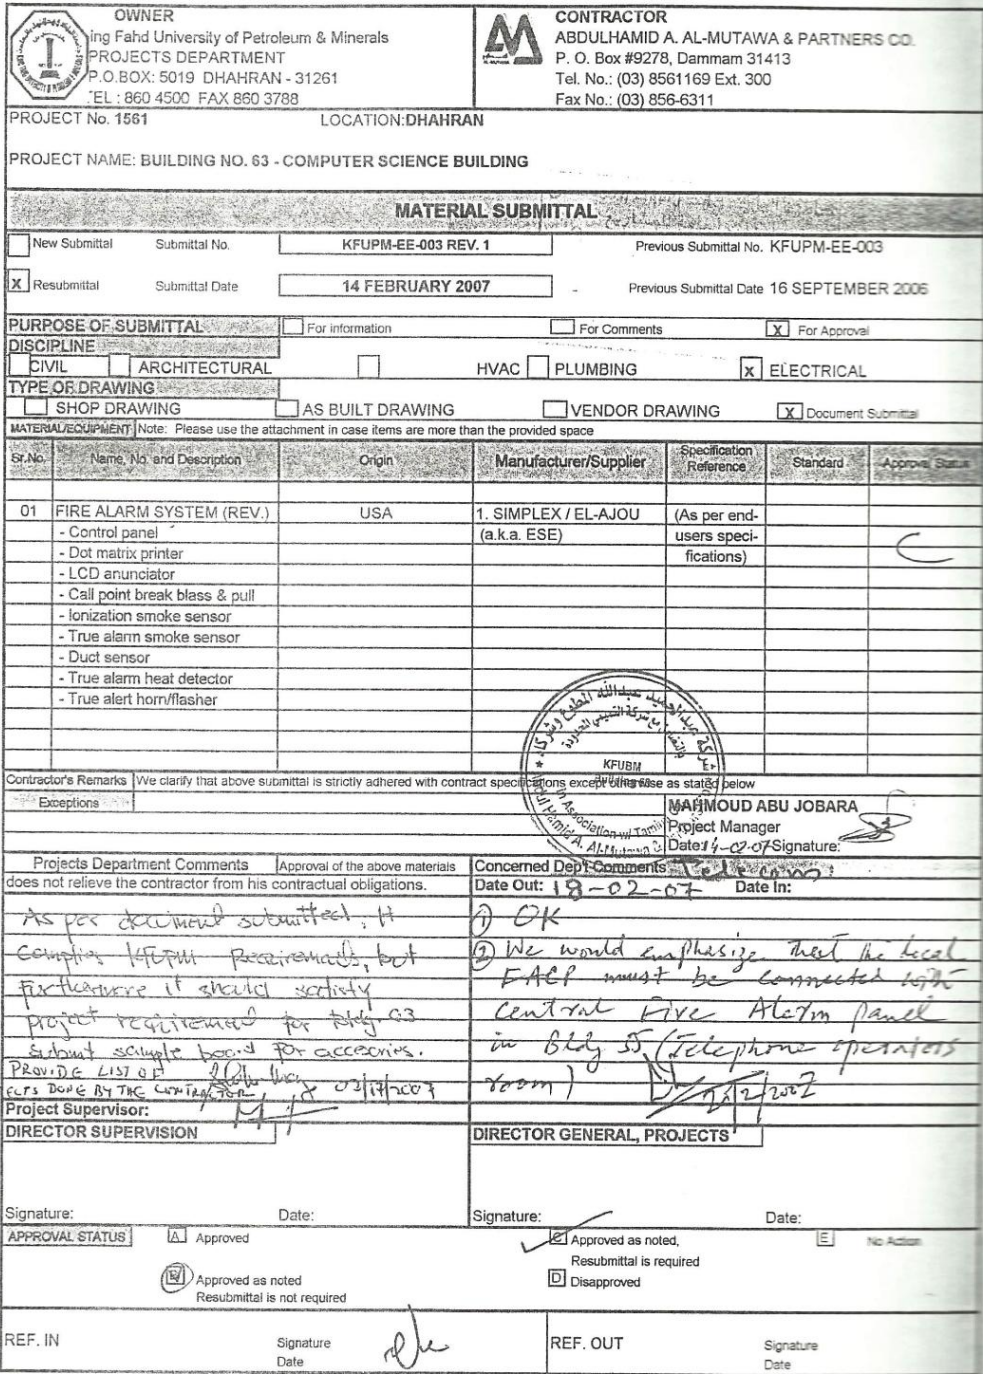 OWNER
ing Fahd University of Petroleum & Minerals
PROJECTS DEPARTMENT
P.O.BOX: 5019 DHAHRAN - 31261
TEL : 860 4500 FAX 860 3788
CONTRACTOR
ABDULHAMID A. AL-MUTAWA & PARTNERS CO.
P. O. Box #9278, Dammam 31413
Tel. No.: (03) 8561169 Ext. 300
Fax No.: (03) 856-6311
PROJECT No. 1561 LOCATION:DHAHRAN
PROJECT NAME: BUILDING NO. 63 - COMPUTER SCIENCE BUILDING
MATERIAL SUBMITTAL
New Submittal Submittal No. KFUPM-EE-003 REV. 1 Previous Submittal No. KFUPM-EE-003
X Resubmittal Submittal Date 14 FEBRUARY 2007 Previous Submittal Date 16 SEPTEMBER 2006
PURPOSE OF SUBMITTAL For information For Comments X For Approval
DISCIPLINE
CIVIL ARCHITECTURAL HVAC PLUMBING X ELECTRICAL
TYPE OF DRAWING
SHOP DRAWING AS BUILT DRAWING VENDOR DRAWING X Document Submittal
MATERIAL/EQUIPMENT Note: Please use the attachment in case items are more than the provided space
Sr.No. Name, No. and Description Origin Manufacturer/Supplier Specification Reference Standard Approval Status
01 FIRE ALARM SYSTEM (REV.) USA 1. SIMPLEX / EL-AJOU (As per end-
- Control panel (a.k.a. ESE) users speci-
- Dot matrix printer fications) C
- LCD anunciator
- Call point break blass & pull
- Ionization smoke sensor
- True alarm smoke sensor
- Duct sensor
- True alarm heat detector
- True alert horn/flasher
KFUBM
Contractor's Remarks We clarify that above submittal is strictly adhered with contract specifications except otherwise as stated below
Exceptions
MAHMOUD ABU JOBARA
Project Manager
Date: 14-02-07 Signature:
Projects Department Comments Approval of the above materials
does not relieve the contractor from his contractual obligations.
Concerned Dep't Comments Telecom:
Date Out: 18-02-07 Date In:
As per document submitted, it
Complies KFUPM Requirements, but
furthermore it should satisfy
project requirement for Bldg. 63
submit sample board for accesories.
PROVIDE LIST OF
DONE BY THE CONTRACTOR 02/17/2007
① OK
② We would emphasize that the local
FACP must be connected with
Central Fire Alarm panel
in Bldg 55 (Telephone operators
room)
Project Supervisor:
DIRECTOR SUPERVISION
DIRECTOR GENERAL, PROJECTS
Signature: Date:
Signature: Date:
APPROVAL STATUS A Approved
C Approved as noted,
Resubmittal is required
E No Action
B Approved as noted
Resubmittal is not required
D Disapproved
REF. IN Signature
Date
REF. OUT Signature
Date